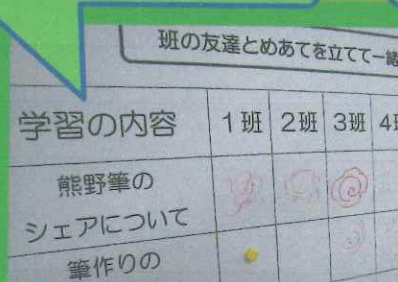 班の友達とめあてを立てて一緒
学習の内容 1班 2班 3班 4班
熊野筆の
シェアについて
筆作りの